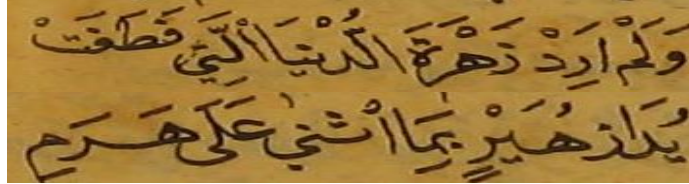 وَلَمْ اُرِدْ زَهْرَةَ الدُّنْيَا الَّتِي قَطَفَتْ
يُدَا زُهَيْرٍ بِمَا اثْنٰى عَلَى هَرَمِ